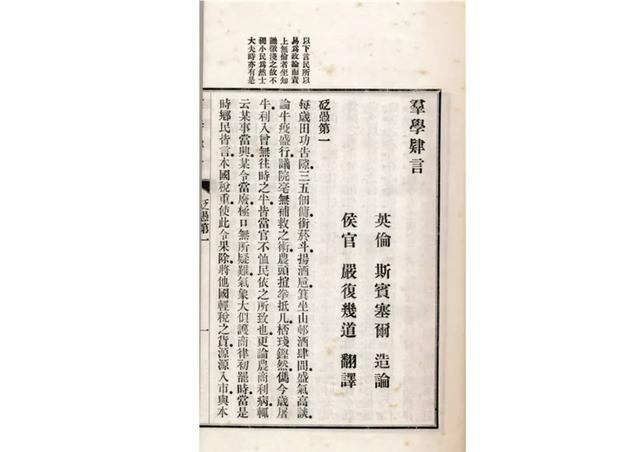 羣學肄言
英倫 斯賓塞爾 造論
侯官 嚴復幾道 翻譯
以下言民所以
易爲政論而責
上無倫者坐知
識微淺之故不
獨小民爲然士
大夫時亦有是
砭愚第一
每歲田功告隙。三五個傭。銜菸斗。揚酒巵。箕坐山邨酒肆間。盛氣高談。
論牛疫盛行。議院毫無補救之術。農頭揎拳抵几。桮琖鏗然。今歲屠
牛。利入曾無往時之半。皆當官不恤民依之所致也。更論農商利病。輒
云某事當興。某令當廢。極口無所疑難。氣象大似護商律初罷時。當是
時鄉民皆言本國稅重。使此令果除。將他國輕稅之貨。源源入市。與本
砭愚第一
一